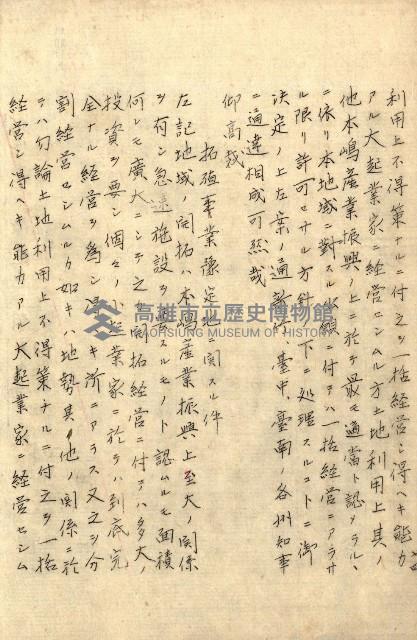 利用上不得策ナルニ付之ヲ一括経営シ得ヘキ能力
アル大起業家ニ経営セシムル方土地利用上其ノ
他本嶋産業振興ノ上ニ於テ最モ適當ト認メラル、
ニ依リ本地域ニ對スル出願ニ付テハ一括経営ニアラサ
ル限リ許可セサル方針ノ下ニ処理スルコトニ御
決定ノ上左案ノ通新竹、臺中、臺南ノ各州知事
ニ通達相成可然哉
仰高裁
拓殖事業豫定地ニ関スル件
左記地域ノ開拓ハ本嶋産業振興上至大ノ関係
ヲ有シ急速施設ヲ要スルモノト認ムルモ面積
何レモ廣大ニシテ之カ開拓経営ニ付テハ多大ノ
投資ヲ要シ個々ノ小企業家ニ於テハ到底完
全ナル経営ヲ為シ得ヘキ所ニアラス又之ヲ分
割経営セシムルカ如キハ地勢其ノ他ノ関係ニ於
テハ勿論土地利用上不得策ナルニ付之ヲ一括
経営シ得ヘキ能力アル大起業家ニ経営セシム
高雄市立歷史博物館
KAOHSIUNG MUSEUM OF HISTORY